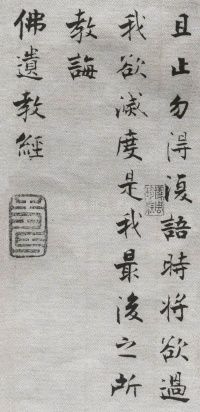 且止勿得復語時將欲過
我欲滅度是我最後之所
教誨
佛遺教經